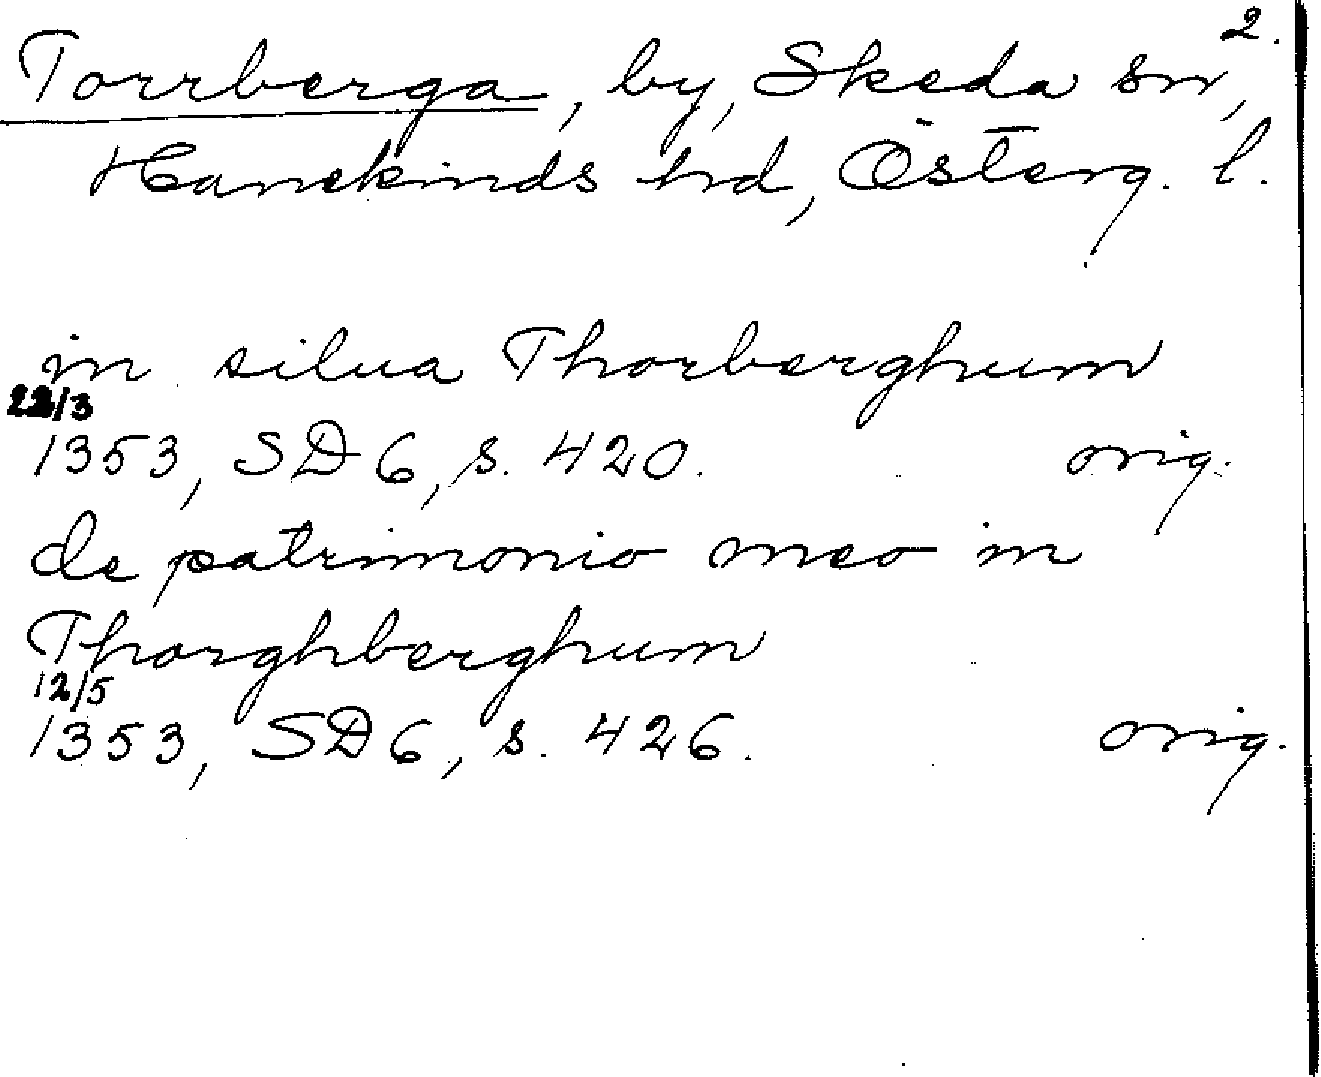 2.
Torrberga, by, Skeda sn,
Hanekinds hd, Österg. l.
in silua Thorberghum
22/3
1353, SD 6, s. 420. orig.
de patrimonio meo in
Thorghberghum
12/5
1353, SD 6, s. 426. orig.